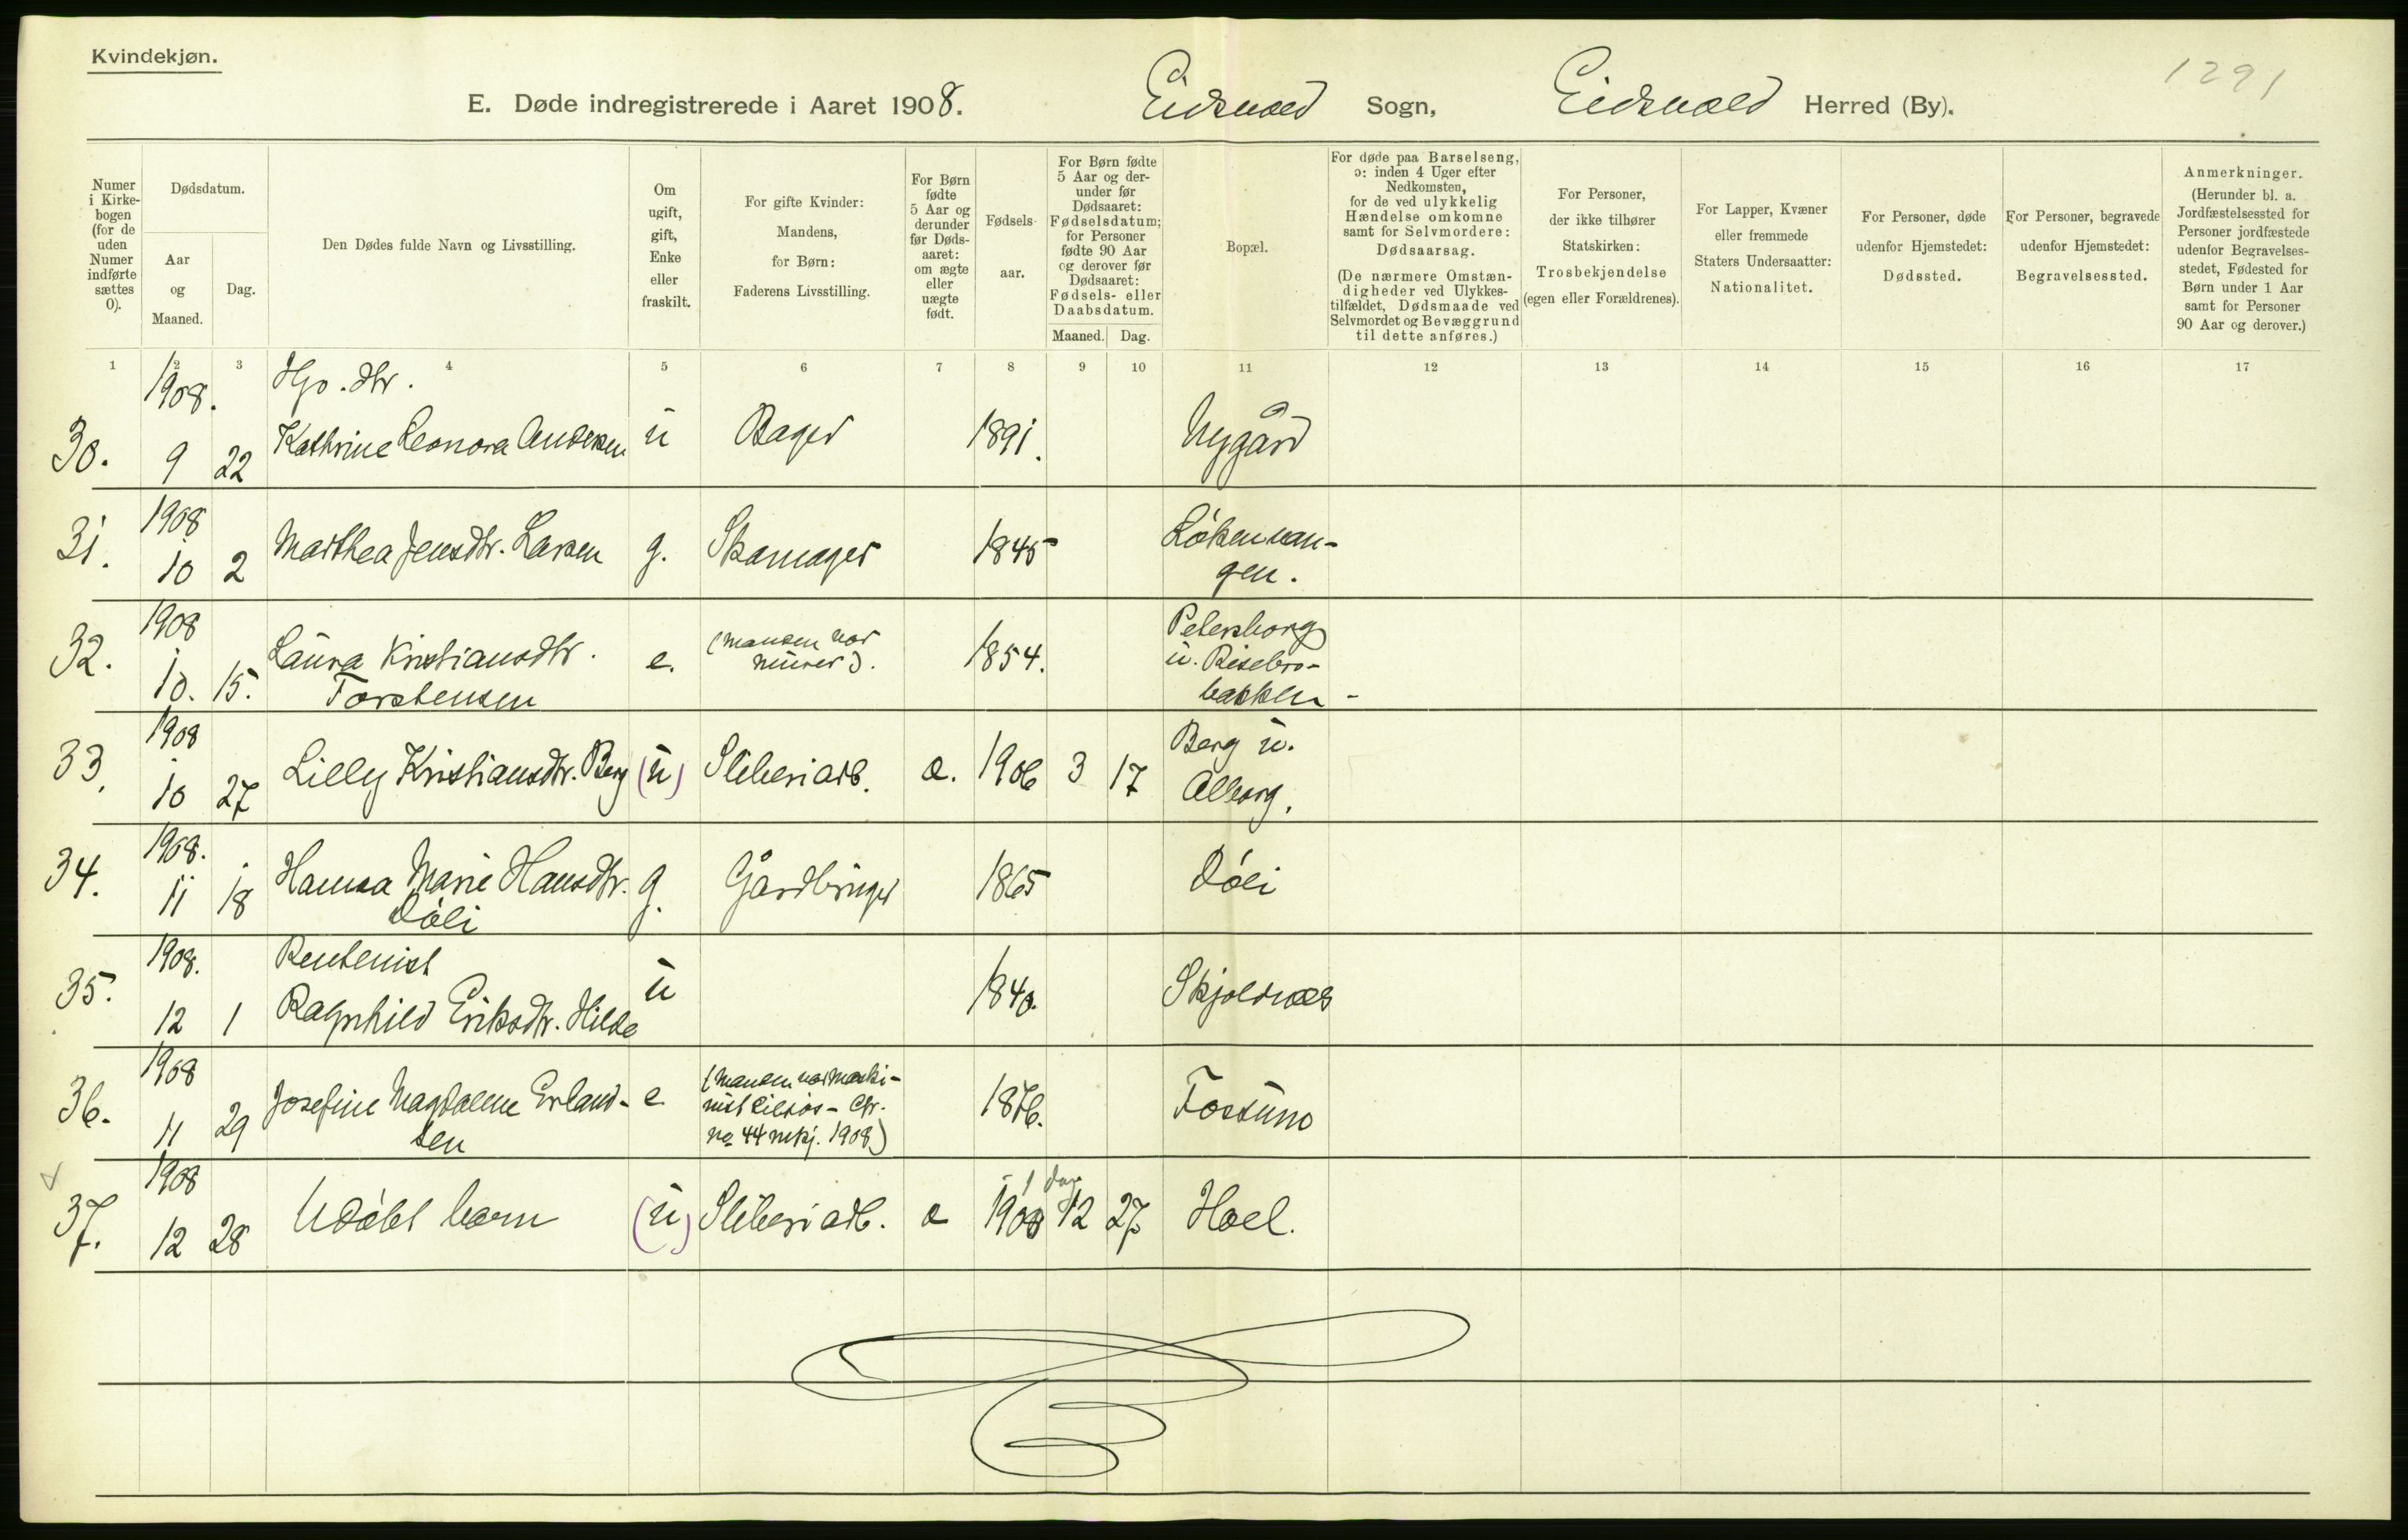 Kvindekjøn.
1291
E. Døde indregistrerede i Aaret 1908. Eidsvold Sogn, Eidsvold Herred (By).
Numer i Kirkebogen (for de uden Numer indførte sættes 0).
Dødsdatum.
Aar og Maaned.
Dag.
Den Dødes fulde Navn og Livsstilling.
Om ugift, gift, Enke eller fraskilt.
For gifte Kvinder: Mandens, for Børn: Faderens Livsstilling.
For Børn fødte 5 Aar og derunder før Dødsaaret: om ægte eller uægte født.
Fødsels aar.
For Børn fødte 5 Aar og derunder før Dødsaaret: Fødselsdatum; for Personer fødte 90 Aar og derover før Dødsaaret: Fødsels- eller Daabsdatum.
Maaned. Dag.
Bopæl.
For døde paa Barselseng, ɔ: inden 4 Uger efter Nedkomsten, for de ved ulykkelig Hændelse omkomne samt for Selvmordere: Dødsaarsag. (De nærmere Omstændigheder ved Ulykkestilfældet, Dødsmaade ved Selvmordet og Bevæggrund til dette anføres.)
For Personer, der ikke tilhører Statskirken: Trosbekjendelse (egen eller Forældrenes).
For Lapper, Kvæner eller fremmede Staters Undersaatter: Nationalitet.
For Personer, døde udenfor Hjemstedet: Dødssted.
For Personer, begravede udenfor Hjemstedet: Begravelsessted.
Anmerkninger. (Herunder bl. a. Jordfæstelsessted for Personer jordfæstede udenfor Begravelsesstedet, Fødested for Børn under 1 Aar samt for Personer 90 Aar og derover.)
1 2 3 4 5 6 7 8 9 10 11 12 13 14 15 16 17
1908. Hjo. dtr.
30. 9 22 Kathrine Leonora Andersen u Bager 1891. Nygård
1908
31. 10 2 Marthea Jensdtr. Larsen g. Skomager 1845 Lökenvan-
gen.
1908 Petersborg
32. 10. 15. Laura Kristiansdtr. e. (manden var 1854. u. Risebro-
Torstensen murer). bakken
1908 Berg u.
33. 10 27 Lilly Kristiansdtr. Berg (u) Sliberiarb. æ. 1906 3 17 Alborg.
1908.
34. 11 18 Hanna Marie Hansdtr. g. Gårdbruger 1865 Döli
Döli
1908. Rentenist
35. 12 1 Ragnhild Eriksdtr. Hilde u 1840. Skjoldnæs
1908 (manden var maski-
36. 11 29 Josefine Magdalene Erland- e nist 1876. Fossum
sen no 44 mkj. 1908)
1908 1 dag
37. 12 28 Udöbt barn (u) Sliberiarb. æ 1908 12 27 Hoel.